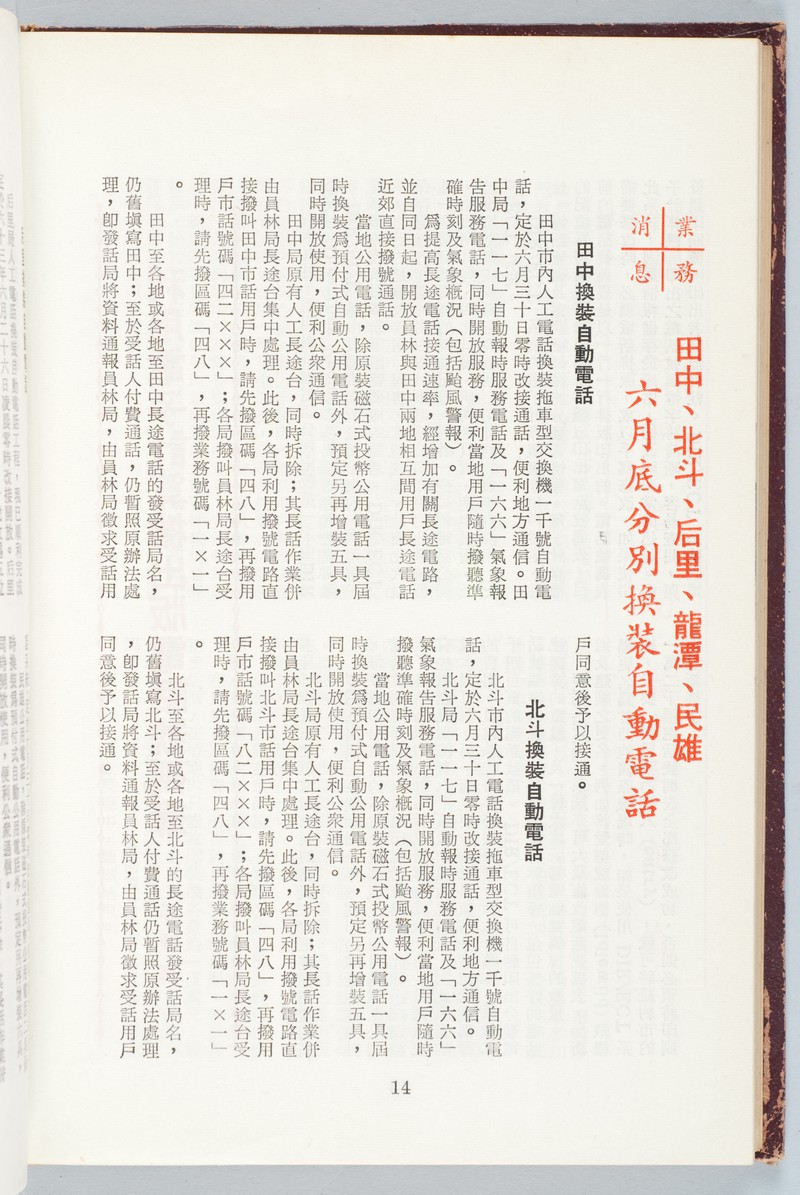 業務
消息
田中、北斗、后里、龍潭、民雄
六月底分別換裝自動電話
田中換裝自動電話
田中市內人工電話換裝拖車型交換機一千號自動電
話，定於六月三十日零時改接通話，便利地方通信。田
中局「一一七」自動報時服務電話及「一六六」氣象報
告服務電話，同時開放服務，便利當地用戶隨時撥聽準
確時刻及氣象概況（包括颱風警報）。
為提高長途電話接通速率，經增加有關長途電路，
並自同日起，開放員林與田中兩地相互間用戶長途電話
近郊直接撥號通話。
當地公用電話，除原裝磁石式投幣公用電話一具屆
時換裝為預付式自動公用電話外，預定另再增裝五具，
同時開放使用，便利公衆通信。
田中局原有人工長途台，同時拆除；其長話作業併
由員林局長途台集中處理。此後，各局利用撥號電路直
接撥叫田中市話用戶時，請先撥區碼「四八」，再撥用
戶市話號碼「四二×××」；各局撥叫員林局長途台受
理時，請先撥區碼「四八」，再撥業務號碼「一×一」
。
田中至各地或各地至田中長途電話的發受話局名，
仍舊塡寫田中；至於受話人付費通話，仍暫照原辦法處
理，卽發話局將資料通報員林局，由員林局徵求受話用
戶同意後予以接通。
北斗換裝自動電話
北斗市內人工電話換裝拖車型交換機一千號自動電
話，定於六月三十日零時改接通話，便利地方通信。
北斗局「一一七」自動報時服務電話及「一六六」
氣象報告服務電話，同時開放服務，便利當地用戶隨時
撥聽準確時刻及氣象概況（包括颱風警報）。
當地公用電話，除原裝磁石式投幣公用電話一具屆
時換裝為預付式自動公用電話外，預定另再增裝五具，
同時開放使用，便利公衆通信。
北斗局原有人工長途台，同時拆除；其長話作業併
由員林局長途台集中處理。此後，各局利用撥號電路直
接撥叫北斗市話用戶時，請先撥區碼「四八」，再撥用
戶市話號碼「八二×××」；各局撥叫員林局長途台受
理時，請先撥區碼「四八」，再撥業務號碼「一×一」
。
北斗至各地或各地至北斗的長途電話發受話局名，
仍舊塡寫北斗；至於受話人付費通話仍暫照原辦法處理
，卽發話局將資料通報員林局，由員林局徵求受話用戶
同意後予以接通。
14